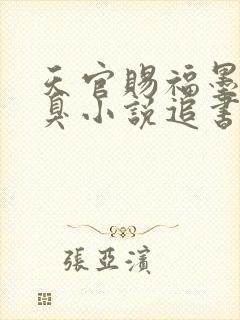 天官賜福墨
真小說追書
張亞濱